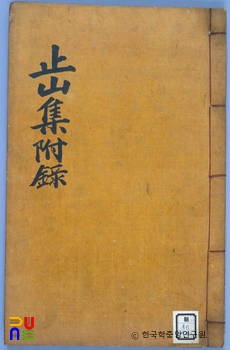 止山集附錄
ⓒ 한국학중앙연구원